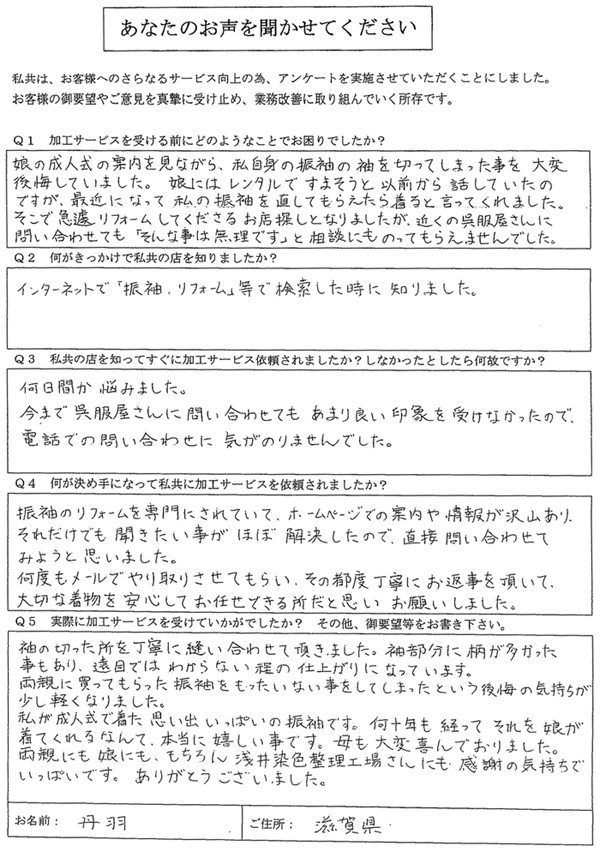 あなたのお声を聞かせてください
私共は、お客様へのさらなるサービス向上の為、アンケートを実施させていただくことにしました。
お客様の御要望やご意見を真摯に受け止め、業務改善に取り組んでいく所存です。
Q1 加工サービスを受ける前にどのようなことでお困りでしたか?
娘の成人式の案内を見ながら、私自身の振袖の袖を切ってしまった事を 大変
後悔していました。 娘には レンタルで すまそうと 以前から 話していたの
ですが、最近になって 私の振袖を直してもらえたら着ると言ってくれました。
そこで急遽リフォームしてくださるお店探しとなりましたが、近くの呉服屋さんに
問い合わせても「そんな事は無理です」と相談にものってもらえませんでした。
Q2 何がきっかけで私共の店を知りましたか?
インターネットで「振袖.リフォーム」等で検索した時に 知りました。
Q3 私共の店を知ってすぐに加工サービス依頼されましたか?しなかったとしたら何故ですか?
何日間か 悩みました。
今まで 呉服屋さんに 問い合わせても あまり良い 印象を受けなかったので、
電話での問い合わせに 気がのりませんでした。
Q4 何が決め手になって私共に加工サービスを依頼されましたか?
振袖のリフォームを専門にされていて、ホームページでの案内や情報が沢山あり、
それだけでも 聞きたい事が ほぼ 解決したので、直接 問い合わせて
みようと思いました。
何度もメールでやり取りさせてもらい、その都度丁寧に お返事を頂いて、
大切な着物を 安心して お任せできる所だと思い お願いしました。
Q5 実際に加工サービスを受けていかがでしたか? その他、御要望等をお書き下さい。
袖の切った所を丁寧に縫い合わせて頂きました。袖部分に 柄が多かった
事もあり、遠目では わからない 程の 仕上がりに なっています。
両親に買ってもらった 振袖をもったいない事をしてしまったという後悔の気持ちが
少し軽くなりました。
私が成人式で着た 思い出いっぱいの振袖です。 何十年も 経って それを 娘が
着てくれるなんて、本当に 嬉しい事です。母も大変 喜んでおりました。
両親にも 娘にも、もちろん 浅井染色整理工場さんにも 感謝の気持ちで
いっぱいです。 ありがとうございました。
お名前: 丹羽 ご住所: 滋賀県